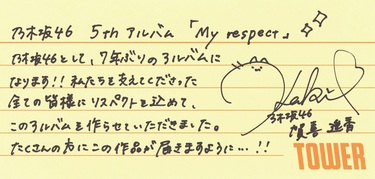 乃木坂46 5thアルバム「My respect」
乃木坂46として、7年ぶりのアルバムに
なります!! 私たちを支えてくださった
全ての皆様にリスペクトを込めて、
このアルバムを作らせていただきました。
たくさんの方にこの作品が届きますように…!!
Kaki
乃木坂46
賀喜 遥香
TOWER